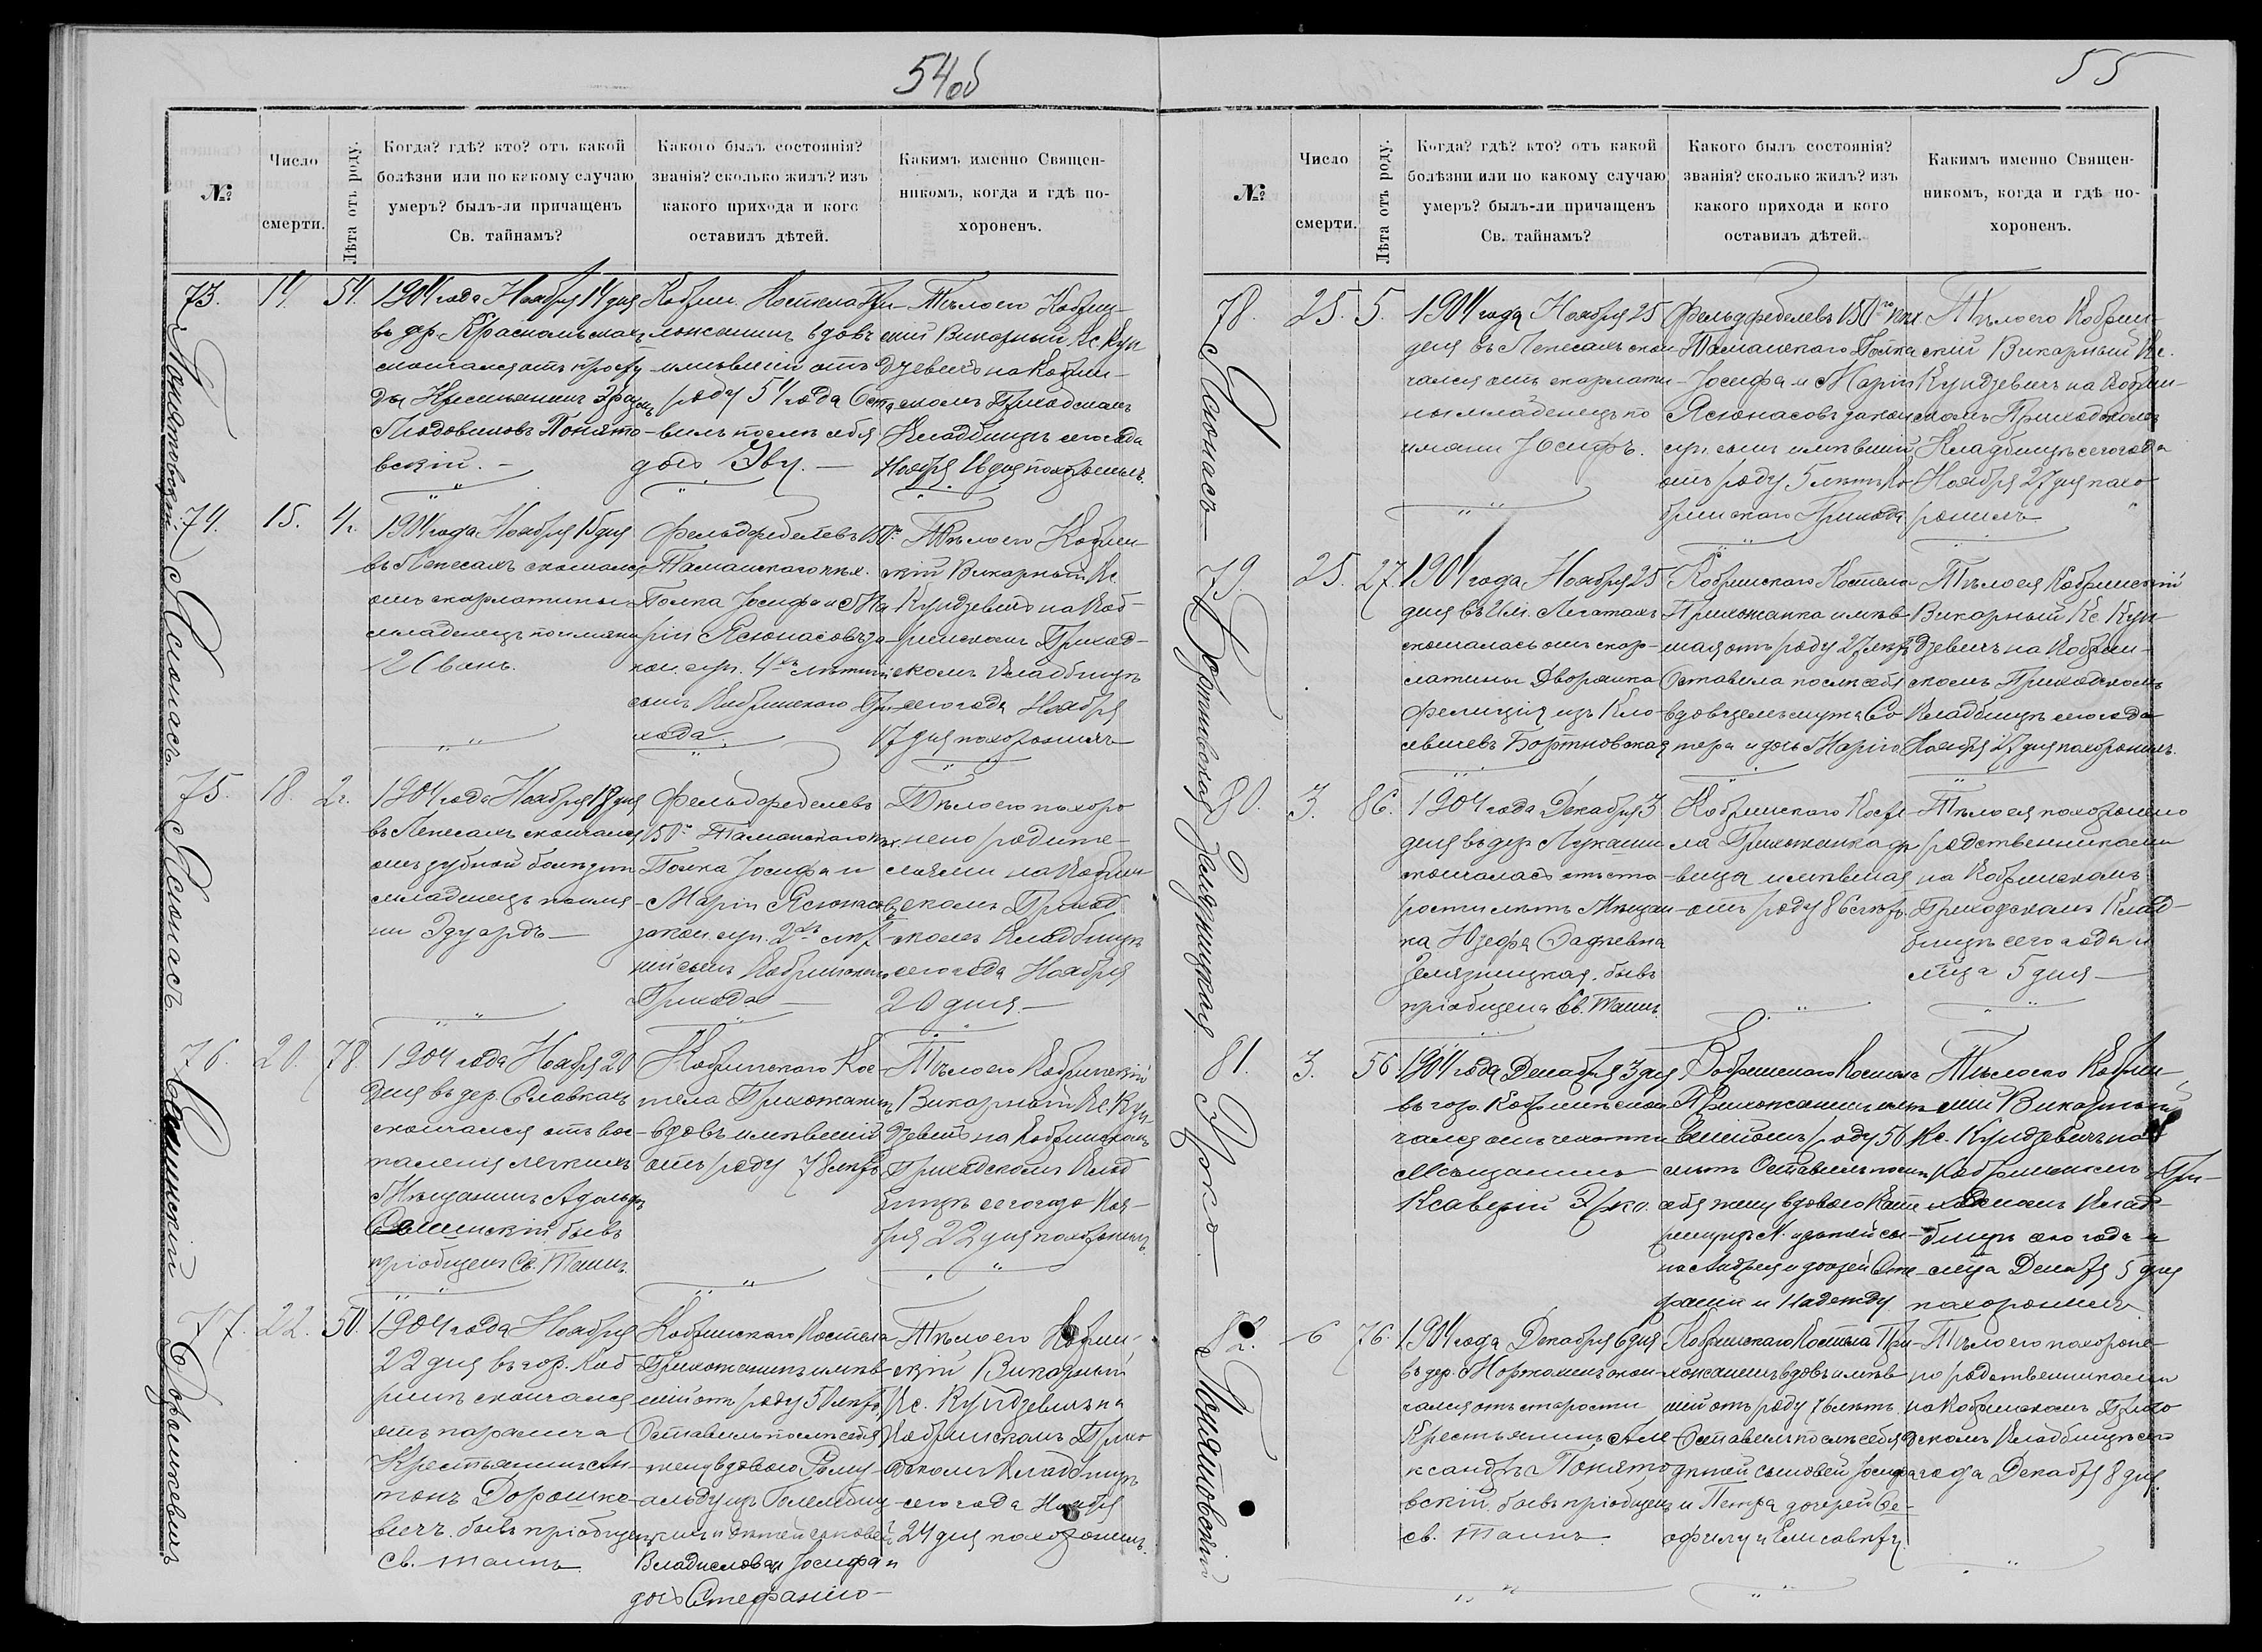 54об
№
Число
смерти.
Лѣта отъ роду.
Когда? гдѣ? кто? отъ какой
болѣзни или по какому случаю
умеръ? былъ-ли причащенъ
Св. тайнамъ?
Какого былъ состоянія?
званія? сколько жилъ? изъ
какого прихода и кого
оставилъ дѣтей.
Какимъ именно Священ-
никомъ, когда и гдѣ по-
хороненъ.
73.
Понятовскій
14.
54.
1904 года Ноября 14 дня
въ дер.
скончался отъ просту
ды Крестьянинъ
Людовиковъ Понято-
вскій. —
Кобрин. Костела При-
хожанинъ вдовъ
имѣвшій отъ
роду 54 года Оста
вилъ послѣ себя
дочь Эву. —
Тѣло его Кобрин-
скій Викарный Кс. Кун
дзевичъ на Кобрин-
скомъ Приходскомъ
Кладбищѣ сего года
Ноября 16 дня похоронилъ.
74.
Ясюнасъ
15.
4г.
1904 года Ноября 15 дня
въ Лепесахъ скончался
отъ скарлатины
младенецъ по имяни
Иванъ.
Фельдфебелевъ 150го
Таманскаго пѣх.
Полка Іосифа и Ма
ріи Ясюнасовъ за-
кон. суп. 4хъ лѣтній
сынъ Кобринскаго При-
хода.
Тѣло его Кобрин-
скій Викарный Кс.
Кундзевичъ на Коб-
ринскомъ Приход-
скомъ Кладбищѣ
сего года Ноября
17 дня похоронилъ
75.
Ясюнасъ.
18.
2г.
1904 года Ноября 18 дня
въ Лепесахъ скончался
отъ зубной болѣзни
младенецъ по имя-
ни Эдуардъ —
Фельдфебелевъ
150го Таманскаго пѣх.
Полка Іосифа и
Маріи Ясюнасовъ
закон. суп. 2хъ лѣт-
ній сынъ Кобринскаго
Прихода —
Тѣло его похоро
нено родите-
лями на Кобрин-
скомъ Приход
скомъ Кладбищѣ
сего года Ноября
20 дня. —
76.
20.
78.
1904 года Ноября 20
дня въ дер. Славкахъ
скончался отъ вос-
паленія легкихъ
Мѣщанинъ Адольфъ
бывъ
пріобщенъ Св. Таинъ.
Кобринскаго Кос-
тела Прихожанинъ
вдовъ имѣвшій
отъ роду 78 лѣтъ
Тѣло его Кобринскій
Викарный Кс. Кун-
дзевичъ на Кобринскомъ
Приходскомъ Клад
бищѣ сего года Ноя-
бря 22 дня похоронилъ.
77.
Дорошкевичъ
22.
50.
1904 года Ноября
22 дня въ гор. Коб-
ринѣ скончался
отъ паралича
Крестьянинъ Ан-
тонъ Дорошке-
вичъ. бывъ пріобщенъ
Св. таинъ.
Кобринскаго Костела
Прихожанинъ имѣв-
шій отъ роду 50 лѣтъ
Оставилъ послѣ себя
жену вдовою Рому-
альду изъ
и дѣтей сыновей
Владислава и Іосифа и
дочь Стефанію —
Тѣло его Кобрин-
скій Викарный
Кс. Кундзевичъ на
Кобринскомъ Прихо
дскомъ Кладбищѣ
сего года Ноября
24 дня похоронилъ.
55
№
Число
смерти.
Лѣта отъ роду.
Когда? гдѣ? кто? отъ какой
болѣзни или по какому случаю
умеръ? былъ-ли причащенъ
Св. тайнамъ?
Какого былъ состоянія?
званія? сколько жилъ? изъ
какого прихода и кого
оставилъ дѣтей.
Какимъ именно Священ-
никомъ, когда и гдѣ по-
хороненъ.
78.
Ясюнасъ
25.
5.
1904 года Ноября 25
дня въ Лепесахъ скон
чался отъ скарлати-
ны младенецъ по
имяни Іосифъ.
Фельдфебелевъ 150го пѣх.
Таманскаго Полка
Іосифа и Маріи
Ясюнасовъ закон
суп. сынъ имѣвшій
отъ роду 5 лѣтъ Ко
бринскаго Прихода
Тѣло его Кобрин-
скій Викарный Кс.
Кундзевичъ на Кобрин-
скомъ Приходскомъ
Кладбищѣ сего года
Ноября 27 дня похо
ронилъ
79.
Бортновская
25.
27.
1904 года Ноября 25
дня въ им. Легатахъ
скончалась отъ скар-
латины Дворянка
Фелиція изъ
Бортновская
Кобринскаго Костела
Прихожанка имѣв-
шая отъ роду 27 лѣтъ
Оставила послѣ себя
вдовцемъ мужа
и дочь Марію
Тѣло ея Кобринскій
Викарный Кс. Кун-
дзевичъ на Кобрин-
скомъ Приходскомъ
Кладбищѣ сего года
Ноября 27 дня похоронилъ.
80.
Зелязницкая
3.
86.
1904 года Декабря 3
дня въ дер. Лукаши
скончалась отъ ста-
рости лѣтъ Мѣщан
ка Юзефа
Зелязницкая, бывъ
пріобщена Св. Таинъ.
Кобринскаго Косте-
ла Прихожанка дѣ
вица имѣвшая
отъ роду 86 лѣтъ.
Тѣло ея похоронено
родственниками
на Кобринскомъ
Приходскомъ Клад-
бищѣ сего года и
м-ца 5 дня —
81.
Эрко.
3.
56.
1904 года Декабря 3 дня
въ гор. Кобринѣ скон
чался отъ чахотки
Мѣщанинъ
Ксаверій Эрко.
Кобринскаго Костела
Прихожанинъ имѣ
вшій отъ роду 56
лѣтъ Оставилъ послѣ
себя жену вдовою
и дѣтей сы-
на Андрея и дочерей Сте-
фанію и Надежду
Тѣло его Кобрин-
скій Викарный
Кс. Кундзевичъ на
Кобринскомъ При-
ходскомъ Клад-
бищѣ сего года и
м-ца Декабря 5 дня
похоронилъ
82.
Понятовскій
6
76.
1904 года Декабря 6 дня
въ дер. скон-
чался отъ старости
Крестьянинъ Але
ксандръ Понято
вскій. бывъ пріобщенъ
св. Таинъ.
Кобринскаго Костела При-
хожанинъ вдовъ имѣв
шій отъ роду 76 лѣтъ.
Оставилъ послѣ себя
дѣтей сыновей Іосифа
и Петра дочерей Те-
офилу и Елисавету
Тѣло его похороне-
но родственниками
на Кобринскомъ Прихо
дскомъ Кладбищѣ сего
года Декабря 8 дня.